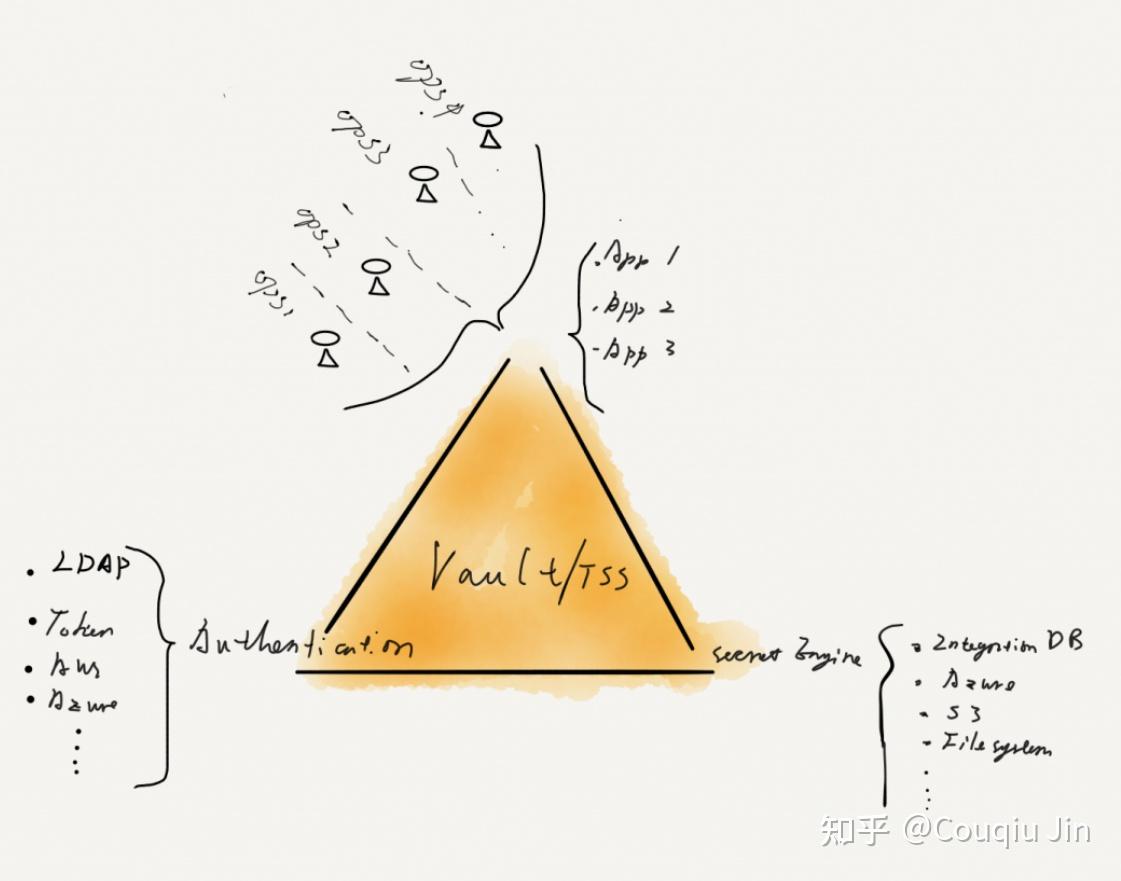 ops4
ops3
ops2
ops1
App 1
App 2
App 3
Vault/TSS
LDAP
Token
Aws
Azure
Authentication
secret Engine
Integration DB
Azure
S3
Filesystem
知乎 @Couqiu Jin